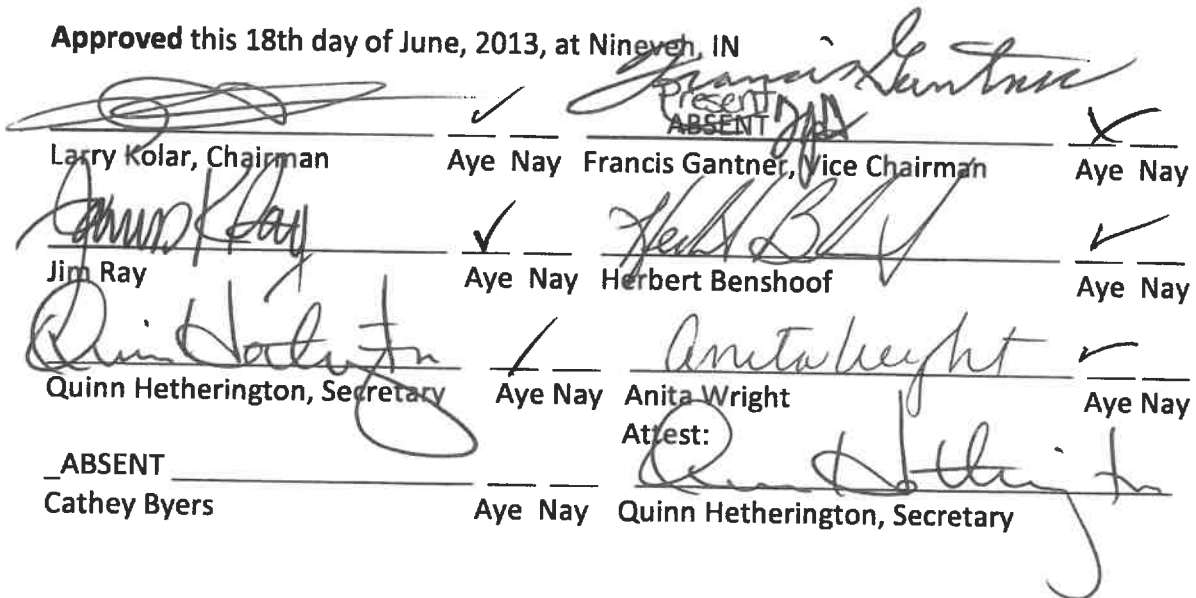 Approved this 18th day of June, 2013, at Nineveh, IN
Francis Gantner
Present
ABSENT
✓ X
Larry Kolar, Chairman Aye Nay Francis Gantner, Vice Chairman Aye Nay
James K Ray ✓ ✓
Jim Ray Aye Nay Herbert Benshoof Aye Nay
Quinn Hetherington ✓ Anita Wright ✓
Quinn Hetherington, Secretary Aye Nay Anita Wright Aye Nay
Attest:
_ABSENT Quinn Hetherington
Cathey Byers Aye Nay Quinn Hetherington, Secretary